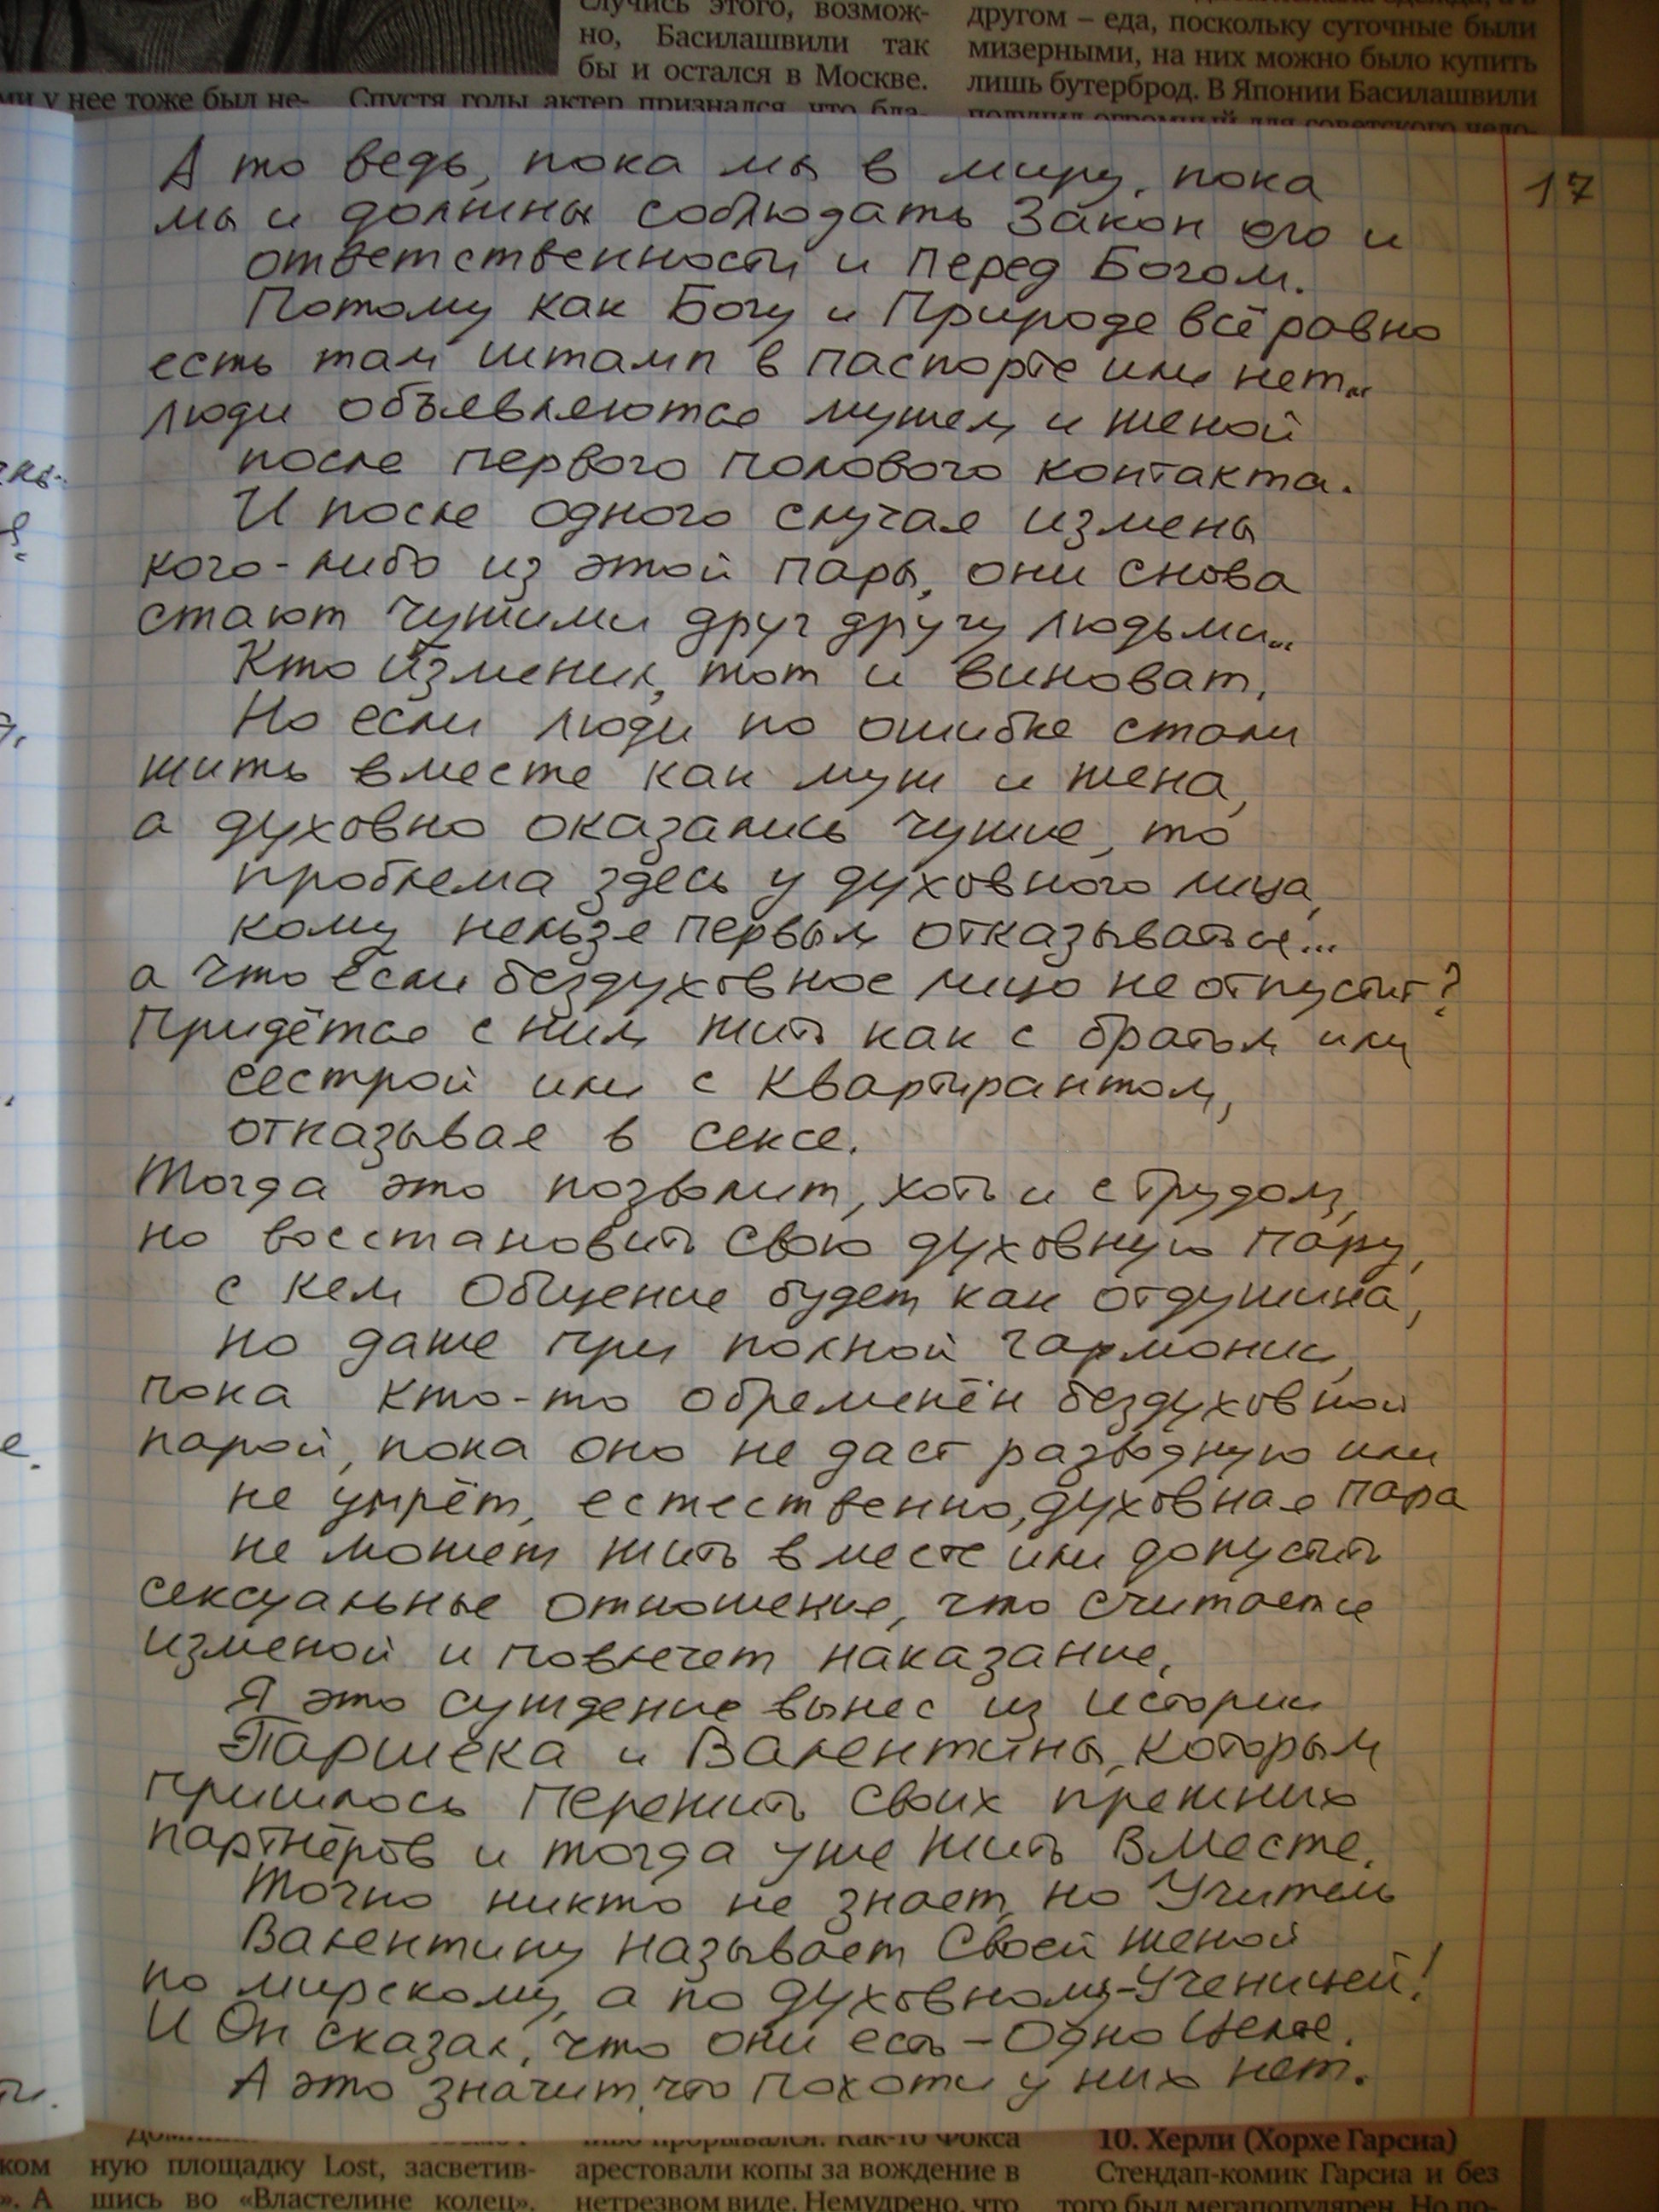 случись этого, возмож-
но, Басилашвили так
бы и остался в Москве.
другом – еда, поскольку суточные были
мизерными, на них можно было купить
лишь бутерброд. В Японии Басилашвили
ми у нее тоже был не-
Спустя годы актер признался, что бла-
17
А то ведь, пока мы в миру, пока
мы и должны соблюдать Закон его и
ответственности и перед Богом.
Потому как Богу и Природе всё равно
есть там штамп в паспорте или нет...
люди объявляются мужем и женой
после первого полового контакта.
И после одного случая измены
кого-либо из этой пары, они снова
стают чужими друг другу людьми...
Кто изменил, тот и виноват.
Но если люди по ошибке стали
жить вместе как муж и жена,
а духовно оказались чужие, то
проблема здесь у духовного лица,
кому нельзя первым отказываться...
а что если бездуховное лицо не отпустит?
Придётся с ним жить как с братом или
сестрой или с квартирантом,
отказывая в сексе.
Тогда это позволит, хоть и с трудом,
но восстановить свою духовную пару,
с кем общение будет как отдушина,
но даже при полной гармонии,
пока кто-то обременён бездуховной
парой, пока оно не даст разводную или
не умрёт, естественно, духовная пара
не может жить вместе или допустить
сексуальные отношение, что считается
изменой и повлечет наказание.
Я это суждение вынес из истории
Паршека и Валентины, которым
пришлось пережить своих прежних
партнёров и тогда уже жить вместе.
Точно никто не знает, но Учитель
Валентину называет Своей женой
по мирскому, а по духовному – Ученицей!
И Он сказал, что они есть – Одно Целое.
А это значит, что похоти у них нет.
ком
». А
ную площадку Lost, засветив-
шись во «Властелине колец».
прорывался. Как-то Фокса
арестовали копы за вождение в
нетрезвом виде. Немудрено, что
10. Херли (Хорхе Гарсиа)
Стендап-комик Гарсиа и без
того был мегапопулярен. Но по-